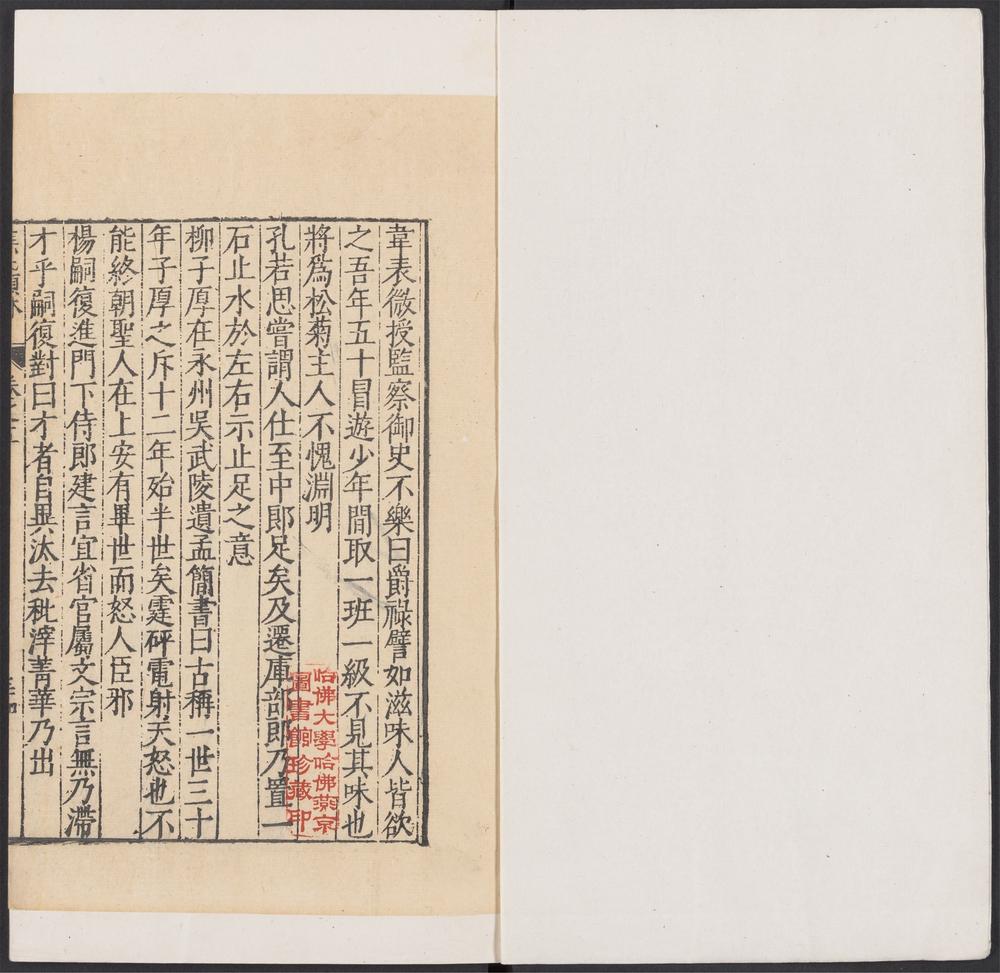 韋表微授監察御史不樂曰爵祿譬如滋味人皆欲
之吾年五十冒遊少年間取一班一級不見其味也
將爲松菊主人不愧淵明
孔若思嘗謂人仕至中郎足矣及遷庫部郎乃置一
石止水於左右示止足之意
柳子厚在永州吳武陵遺孟簡書曰古稱一世三十
年子厚之斥十二年殆半世矣霆砰電射天怒也不
能終朝聖人在上安有畢世而怒人臣邪
楊嗣復進門下侍郎建言宜省官屬文宗言無乃滯
才乎嗣復對曰才者自異汰去秕滓菁華乃出
哈佛大學哈佛燕京
圖書館珍藏印